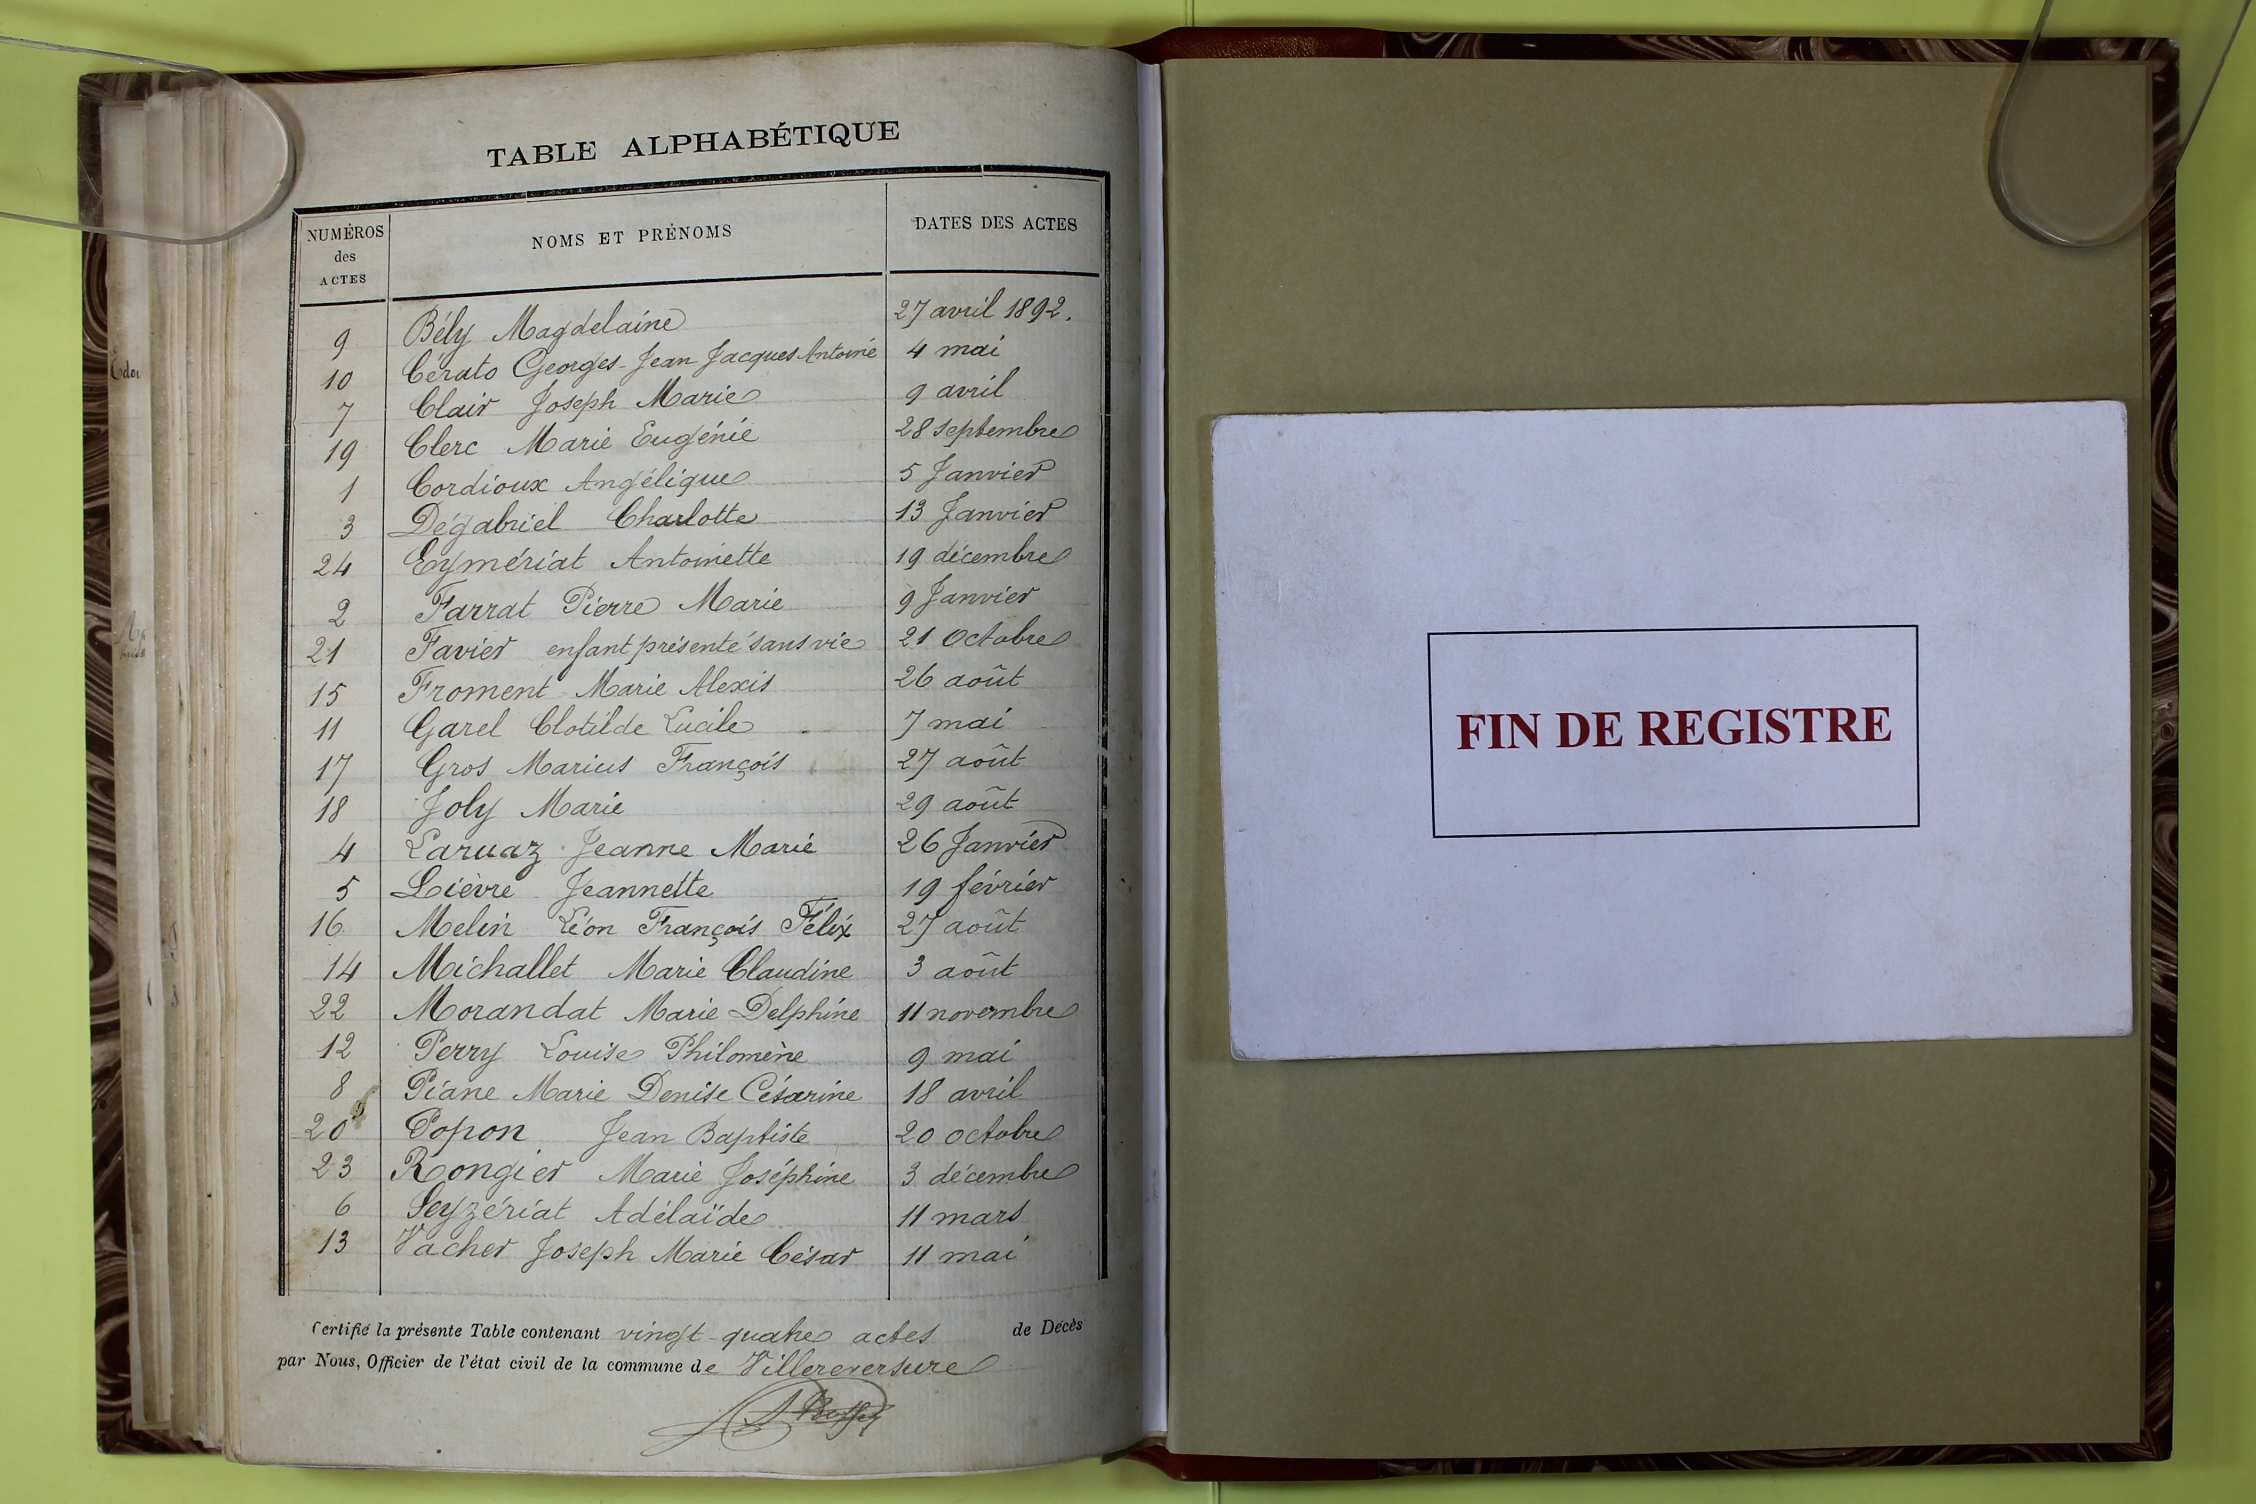 TABLE ALPHABÉTIQUE
NUMÉROS des ACTES NOMS ET PRÉNOMS DATES DES ACTES
9 Bély Magdelaine 27 avril 1892.
10 Cérato Georges-Jean Jacques Antoine 4 mai
7 Clair Joseph Marie 9 avril
19 Clerc Marie Eugénie 28 septembre
1 Cordioux Angélique 5 Janvier
3 Dégabriel Charlotte 13 Janvier
24 Eymériat Antoinette 19 décembre
2 Farrat Pierre Marie 9 Janvier
21 Favier enfant présenté sans vie 21 Octobre
15 Froment Marie Alexis 26 août
11 Garel Clotilde Lucile 7 mai
17 Gros Marius François 27 août
18 Joly Marie 29 août
4 Laruaz Jeanne Marie 26 Janvier
5 Lièvre Jeannette 19 février
16 Melin Léon François Félix 27 août
14 Michallet Marie Claudine 3 août
22 Morandat Marie Delphine 11 novembre
12 Perry Louise Philomène 9 mai
8 Piane Marie Denise Césarine 18 avril
20 Popon Jean Baptiste 20 octobre
23 Rongier Marie Joséphine 3 décembre
6 Seyzériat Adélaïde 11 mars
13 Vacher Joseph Marie César 11 mai
Certifié la présente Table contenant vingt-quatre actes de Décès
par Nous, Officier de l'état civil de la commune de Villereversure
FIN DE REGISTRE